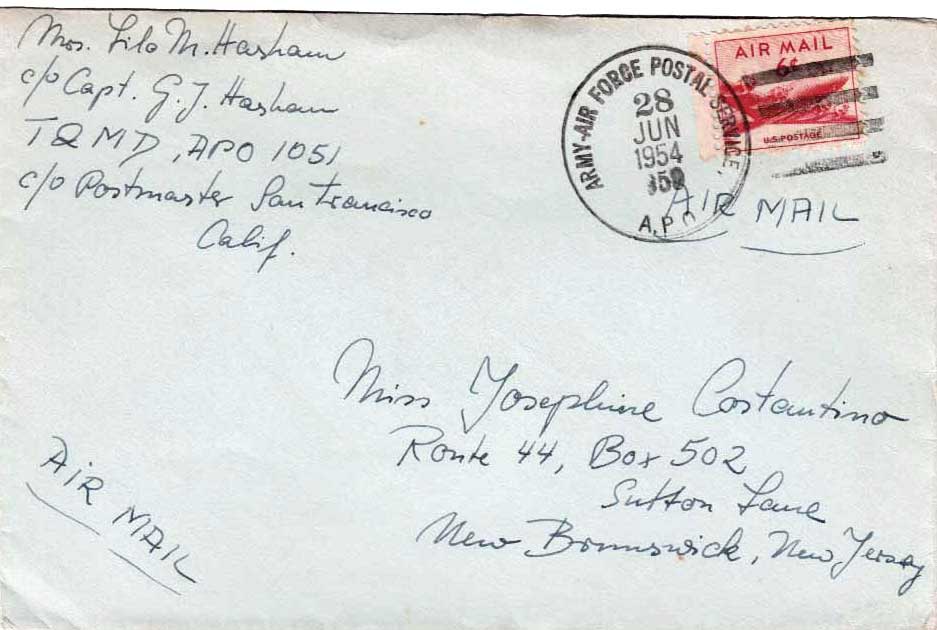 Mrs. Lilo M. Hasham
c/o Capt. G. J. Hasham
T & MD, APO 1051
c/o Postmaster San Francisco
Calif.
ARMY-AIR FORCE POSTAL SERVICE,
28
JUN
1954
A.P.O.
AIR MAIL
6¢
U.S. POSTAGE
AIR MAIL
Miss Josephine Costantino
Route 44, Box 502
Sutton Lane
New Brunswick, New Jersey
AIR MAIL